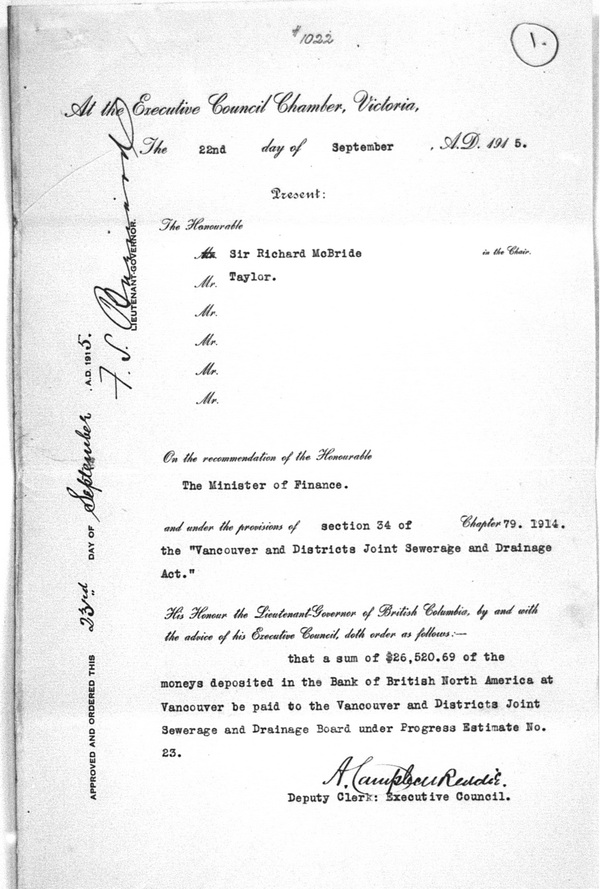 #1022
1.
At the Executive Council Chamber, Victoria,
The 22nd day of September , A.D. 1915.
Present:
The Honourable
Mr. Sir Richard McBride in the Chair.
Mr. Taylor.
Mr.
Mr.
Mr.
Mr.
On the recommendation of the Honourable
The Minister of Finance.
and under the provisions of section 34 of Chapter 79. 1914.
the "Vancouver and Districts Joint Sewerage and Drainage
Act."
His Honour the Lieutenant-Governor of British Columbia, by and with
the advice of his Executive Council, doth order as follows:—
that a sum of $26,520.69 of the
moneys deposited in the Bank of British North America at
Vancouver be paid to the Vancouver and Districts Joint
Sewerage and Drainage Board under Progress Estimate No.
23.
A. Campbell Reddie.
Deputy Clerk: Executive Council.
APPROVED AND ORDERED THIS 23rd DAY OF September , A.D. 1915.
F. S. Barnard
LIEUTENANT-GOVERNOR.